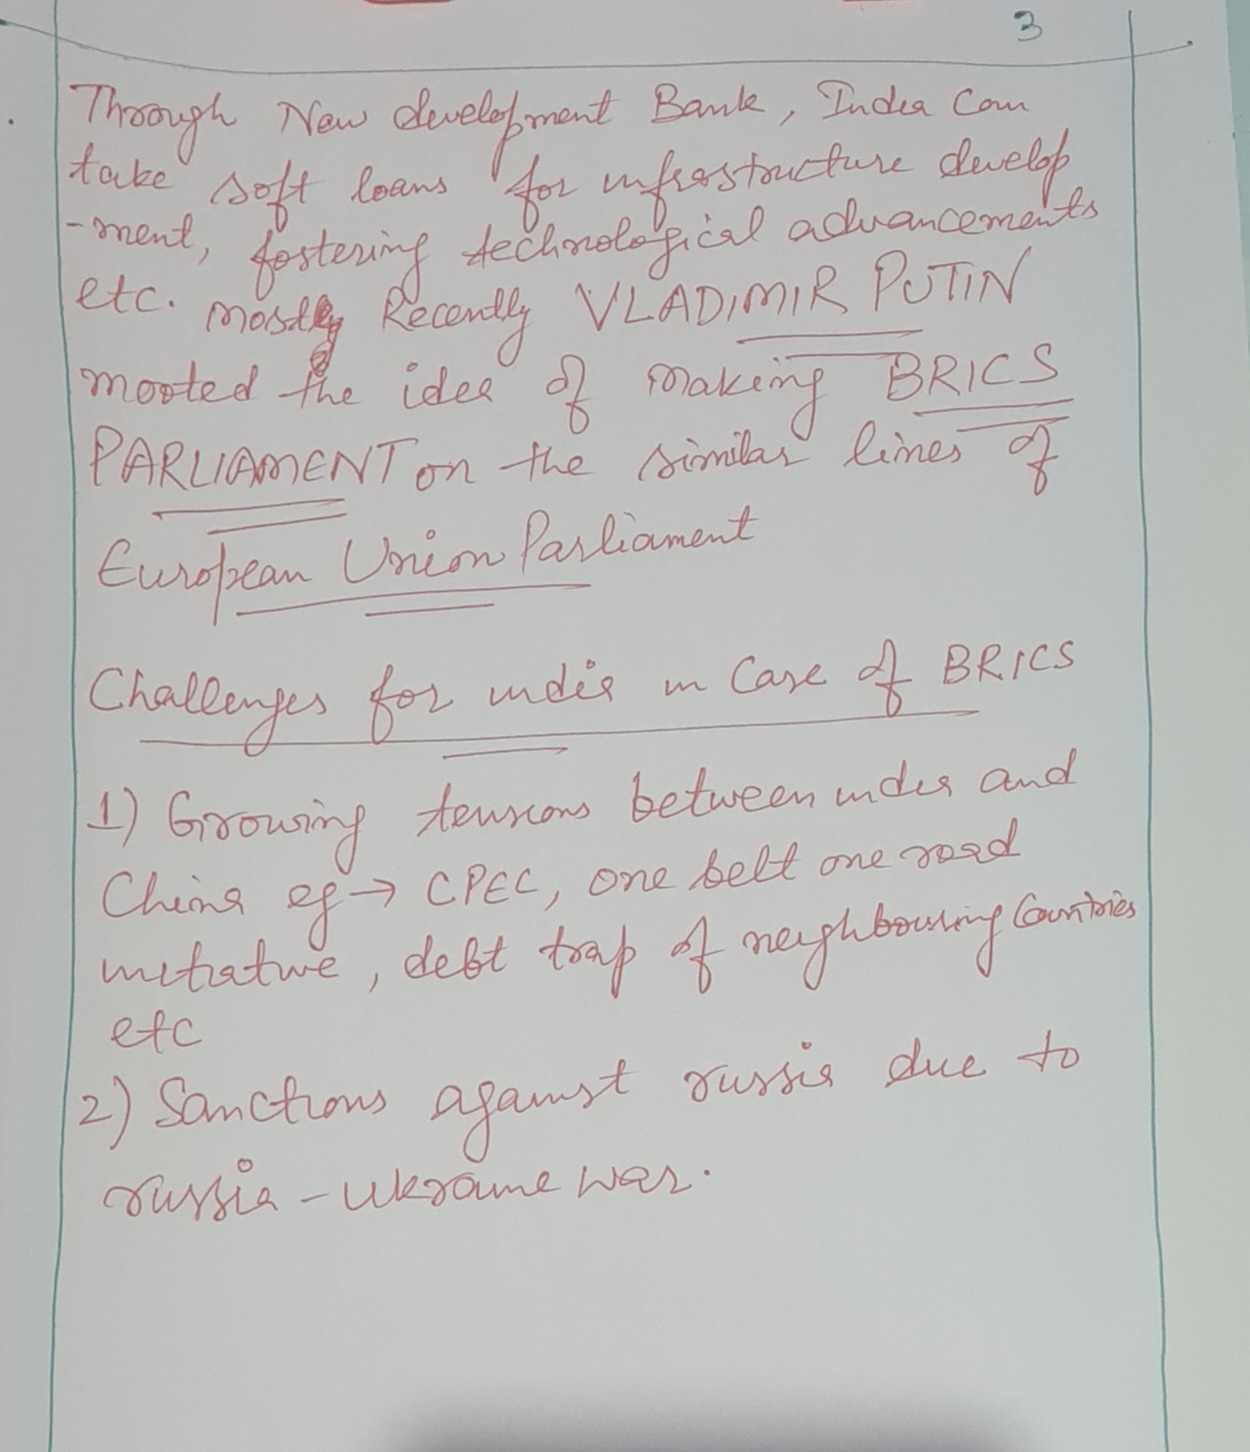 3
Through New development Bank, India can
take soft loans for infrastructure develop
-ment, fostering technological advancements
etc. mostly Recently VLADIMIR PUTIN
mooted the idea of making BRICS
PARLIAMENT on the similar lines of
European Union Parliament
Challenges for india in Case of BRICS
1) Growing tensions between india and
China eg → CPEC, one belt one road
initiative, debt trap of neighbouring Countries
etc
2) Sanctions against russia due to
russia - ukraine war.